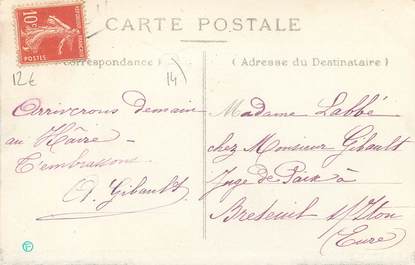 CARTE POSTALE
10c
POSTES
Correspondance)
12€
14)
(Adresse du Destinataire)
Arriverons demain
au Hâvre –
T'embrassons.
A. Gibault
Madame Labbé
chez Monsieur Gibault
Juge de Paix à
Breteuil s/Iton
(Eure)